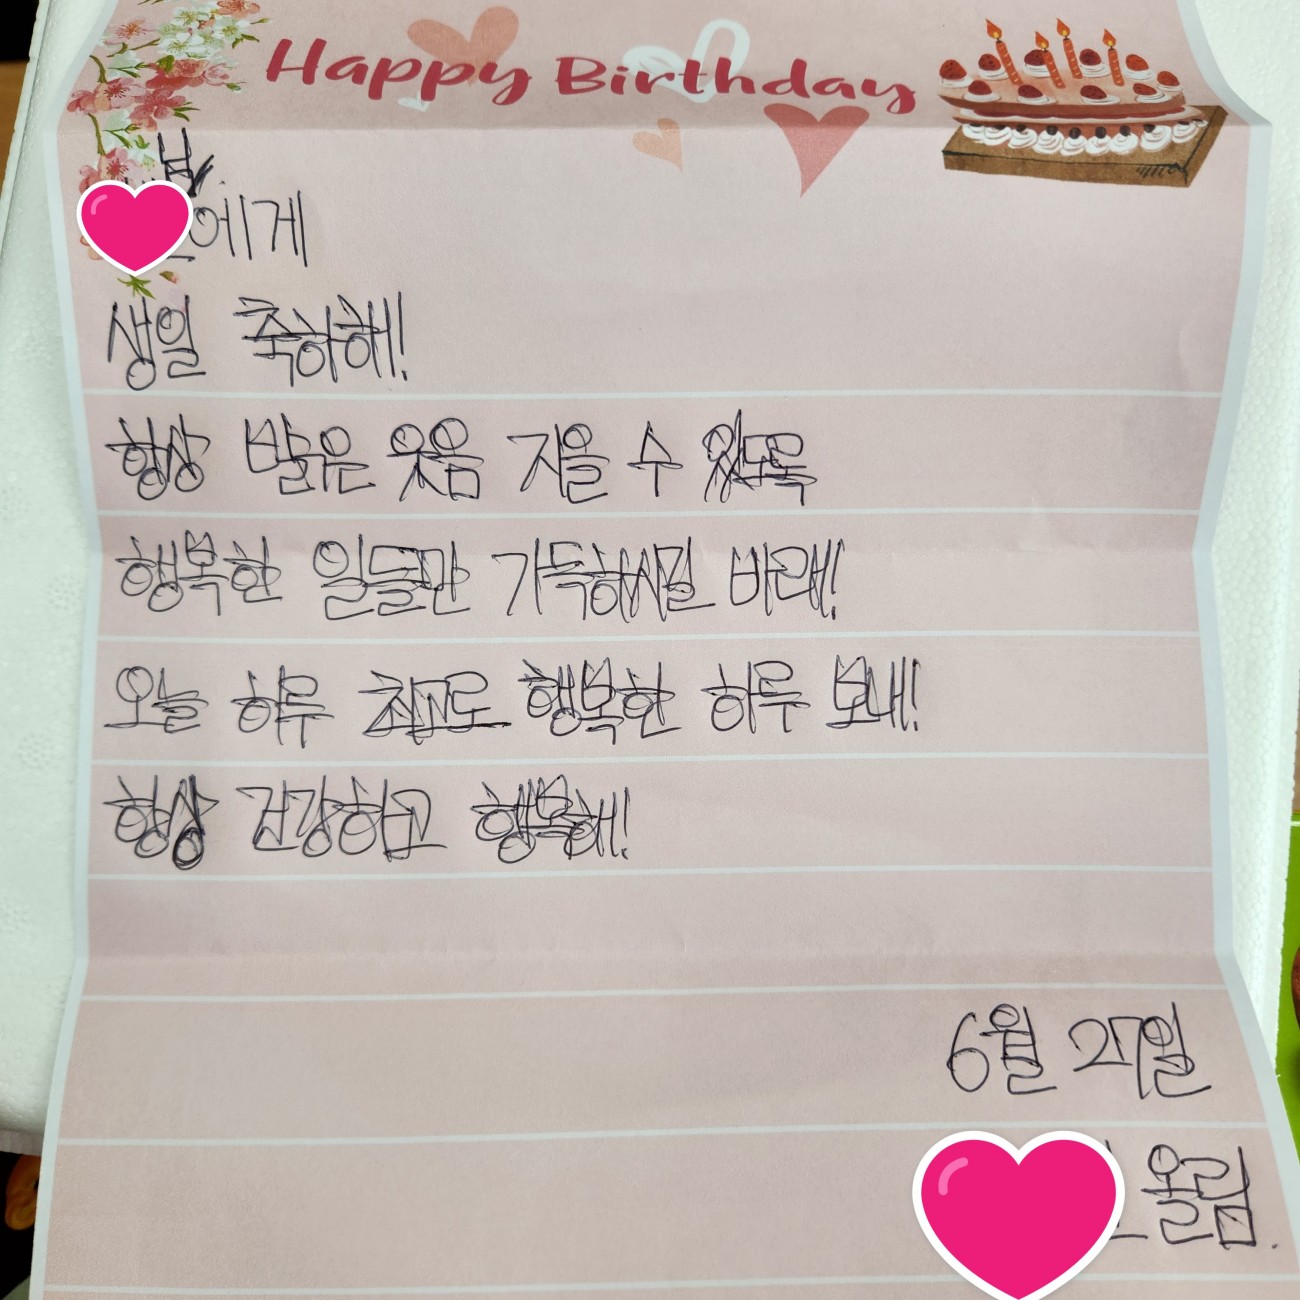 Happy Birthday
에게
생일 축하해!
항상 밝은 웃음 지을 수 있도록
행복한 일들만 가득하시길 바래!
오늘 하루 최고로 행복한 하루 보내!
항상 건강하고 행복해!
6월 27일
올림.